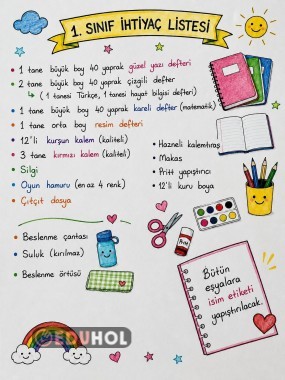 1. SINIF İHTİYAÇ LİSTESİ
• 1 tane büyük boy 40 yaprak güzel yazı defteri
• 2 tane büyük boy 40 yaprak çizgili defter
↳ ( 1 tanesi Türkçe, 1 tanesi hayat bilgisi defteri)
• 1 tane büyük boy 40 yaprak kareli defter (matematik)
• 1 tane orta boy resim defteri
• 12'li kurşun kalem (kaliteli)
• 3 tane kırmızı kalem (kaliteli)
• Silgi
• Oyun hamuru (en az 4 renk)
• Çıtçıt dosya
• Hazneli kalemtıraş
• Makas
• Pritt yapıştırıcı
• 12'li kuru boya
• Beslenme çantası
• Suluk (kırılmaz)
• Beslenme örtüsü
Pritt
Bütün
eşyalara
isim etiketi
yapıştırılacak.
EDUHOL